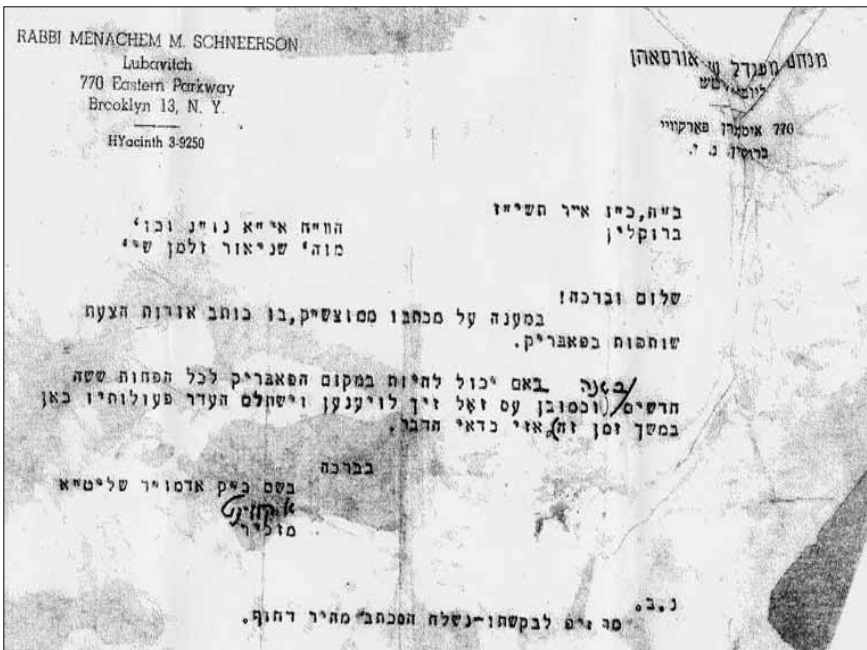 RABBI MENACHEM M. SCHNEERSON
Lubavitch
770 Eastern Parkway
Brooklyn 13, N. Y.
HYacinth 3-9250
מנחם מענדל
ליובאוויטש
770 איסטערן פארקוויי
ברוקלין נ. י.
ב"ה, כ"ז אייר תשי"ז
ברוקלין
הוו"ח אי"א נו"נ וכו'
מוה' שניאור זלמן שי'
שלום וברכה!
במענה על מכתבו ממוצש"ק, בו כותב אודות הצעת
שותפות בפאבריק.
באם יכול לחיות במקום הפאבריק לכל הפחות ששה
חדשים בשנה (וכמובן עס זאל זיך לוינען וישתלם העדר פעולותיו כאן
במשך זמן זה), אזי כדאי הדבר.
בברכה
בשם כ"ק אדמו"ר שליט"א
מזכיר
נ.ב.
לבקשתו-נשלח המכתב מהיר דחוף.